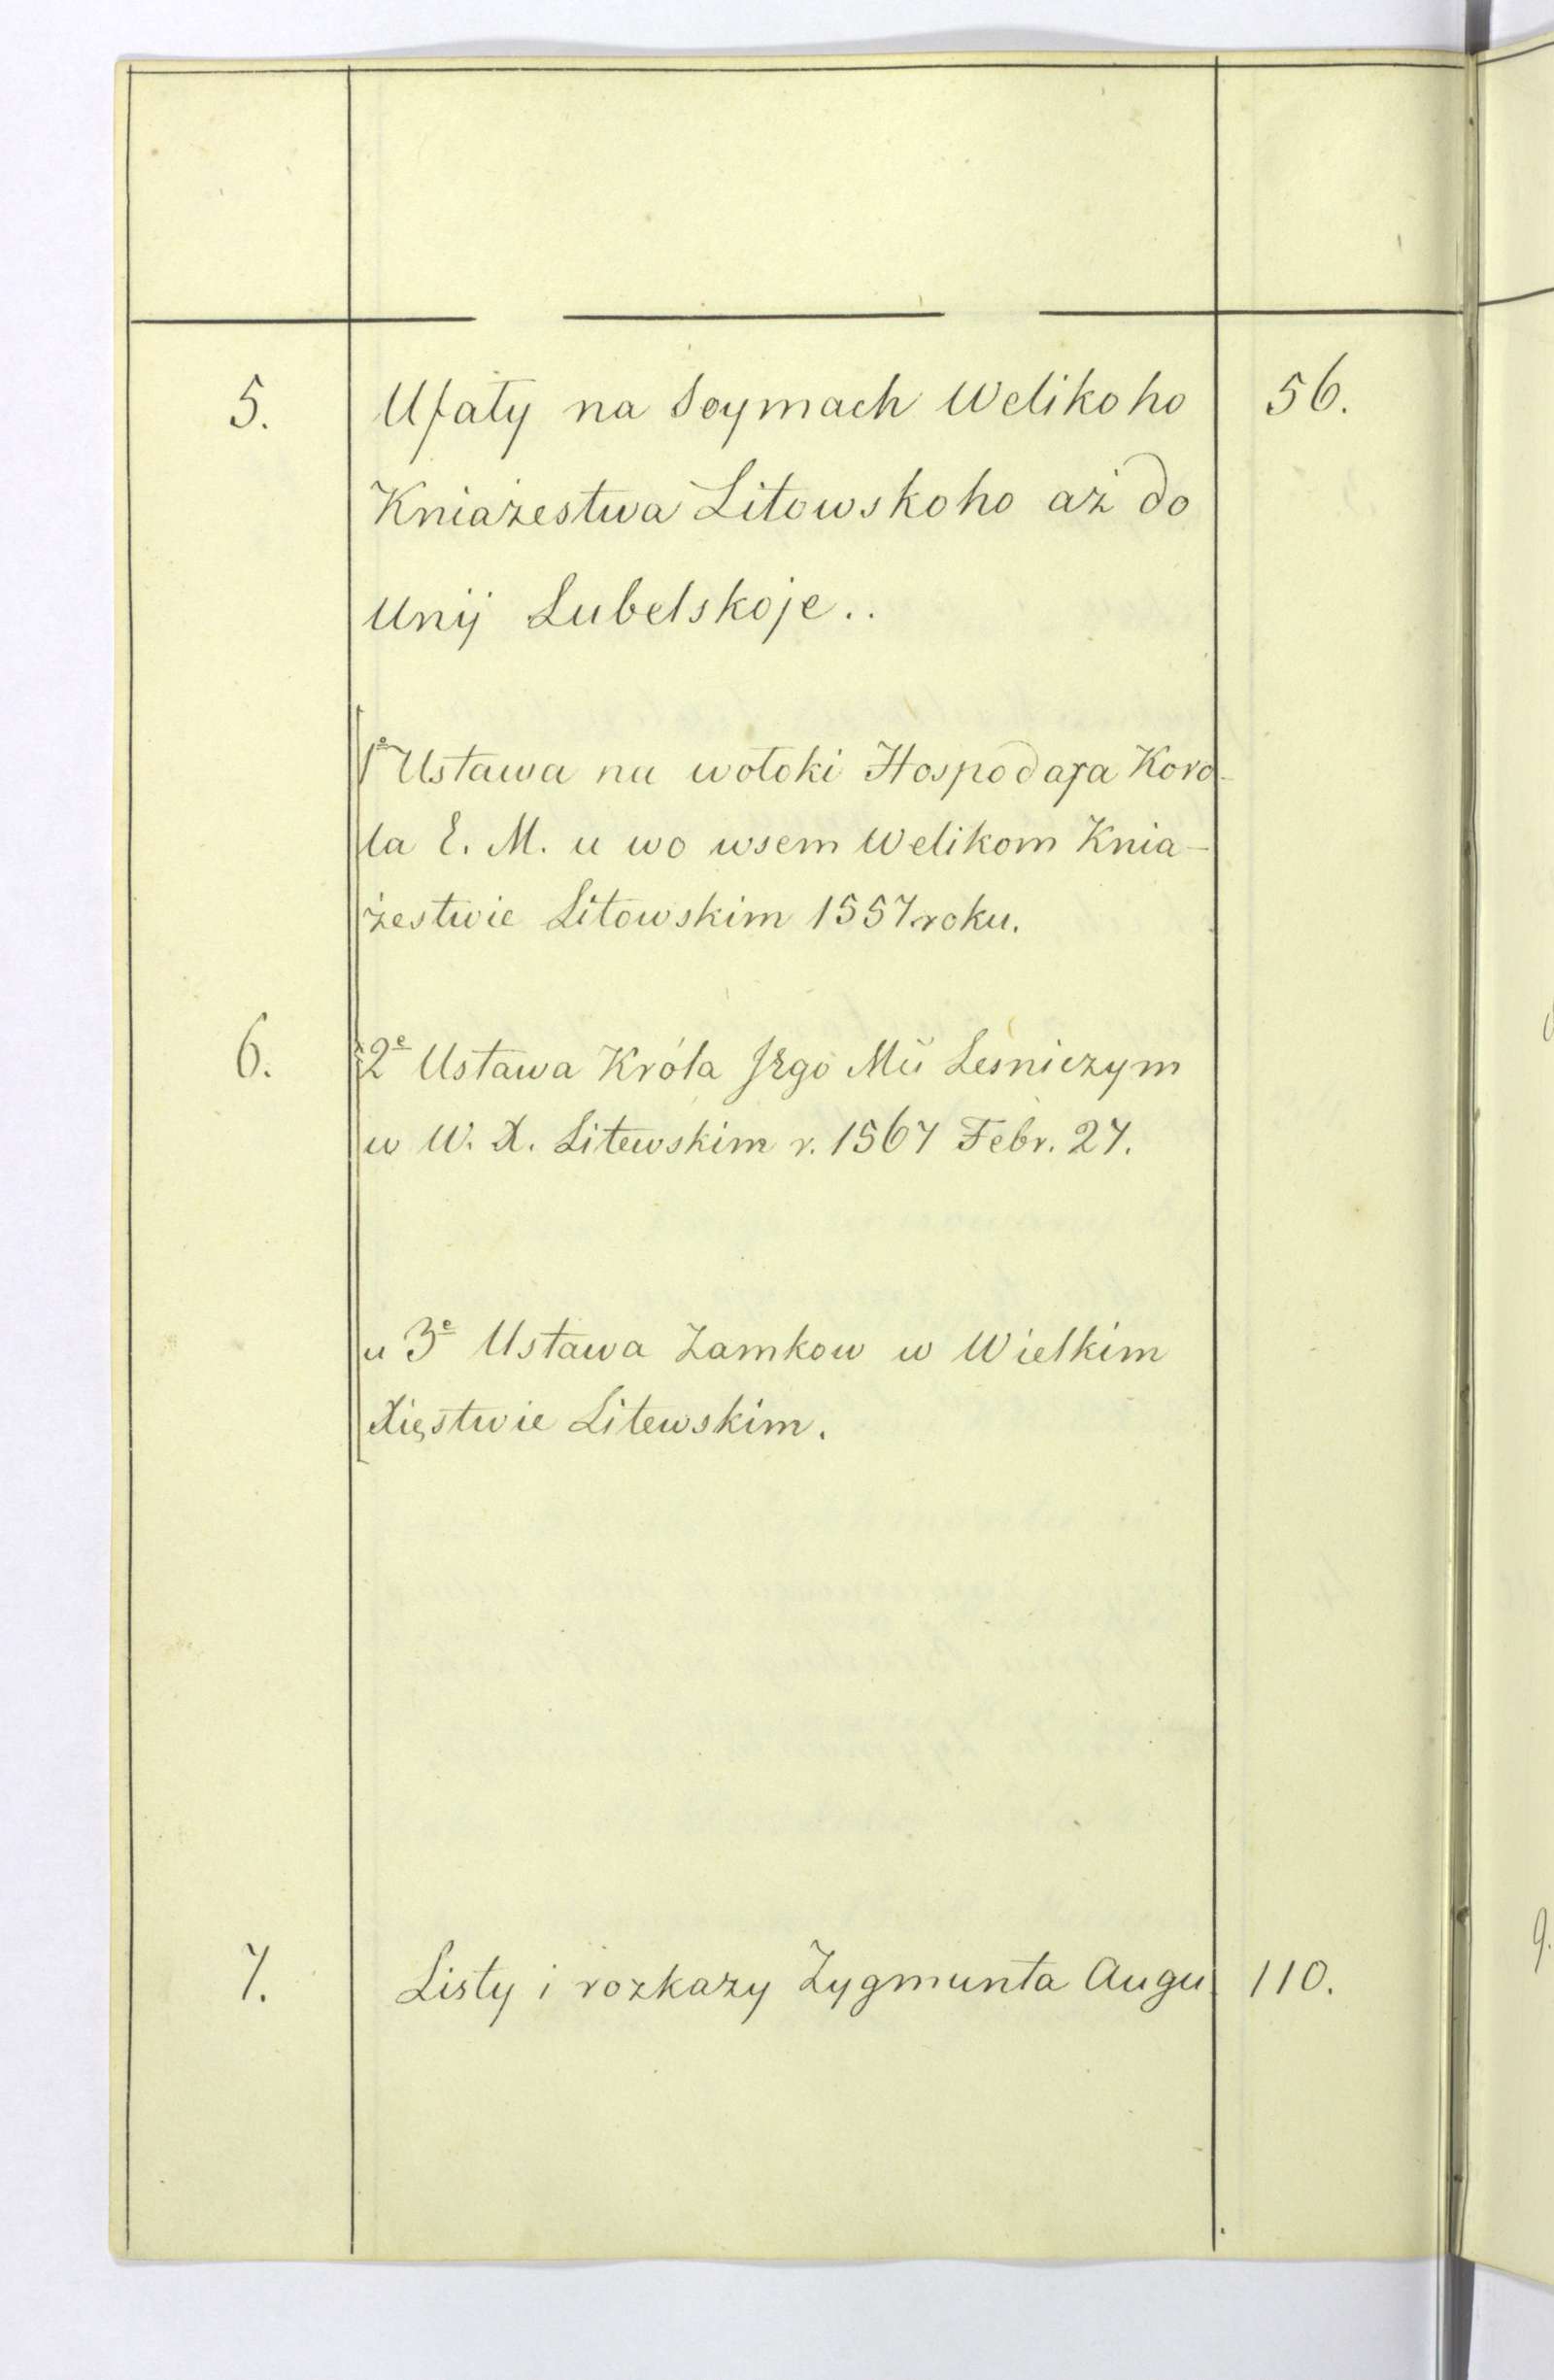 5. Ufały na Soymach Welikoho 56.
Kniażestwa Litowskoho aż do
Unij Lubelskoje..
1e Ustawa na wołoki Hospodara Koro-
la E. M. u wo wsem Welikom Knia-
żestwie Litowskim 1557 roku.
6. 2e Ustawa Króla Jego Mći Leśniczym
w W. X. Litewskim r. 1567 Febr. 27.
u 3e Ustawa Zamkow w Wielkim
Xięstwie Litewskim.
7. Listy i rozkazy Zygmunta Augu 110.